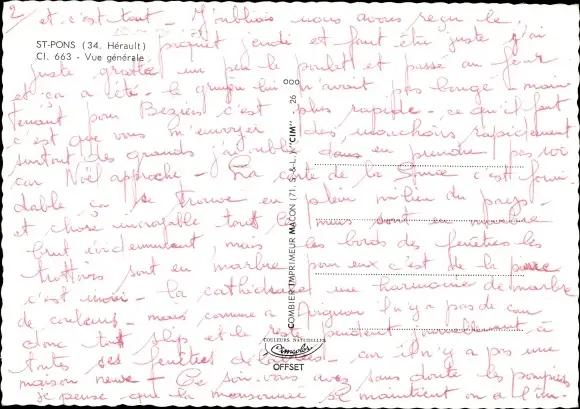 2/ et c'est tout - J'oubliais nous avons reçu le
ST-PONS (34. Hérault) paquet jeudi et fait être juste j'ai
Cl. 663 - Vue générale
juste gratté un peu le poulet et passé au four
et ça a été - le gruyère lui n'avait pas bougé - main
tenant pour Béziers c'est plus rapide - ce qu'il faut
c'est que vous m'envoyer des mouchoirs rapidement
surtout des grands j'ai oublié d'en prendre pas
car Noël approche - La carte de la c'est formi
dable ça se trouve en plein milieu du pays -
et chose incroyable tous les murs sont en marbre
brut évidemment, mais les bords des fenêtres les
trottoirs sont en marbre pour eux c'est de la pierre
c'est - la cathédrale une harmonie de marbre
de couleurs - mais comme à Avignon il n'y a pas de
donc tout slip et le reste pendent à
toutes les fenêtres car il n'y a pas une
maison neuve - Ce soir vous avez sans doute les pompiers
je pense que la se maintient on a l'im-
COMBIER IMPRIMEUR MACON (71. S.-&-L.) "CIM"
26
COULEURS NATURELLES
Cimcolor
OFFSET